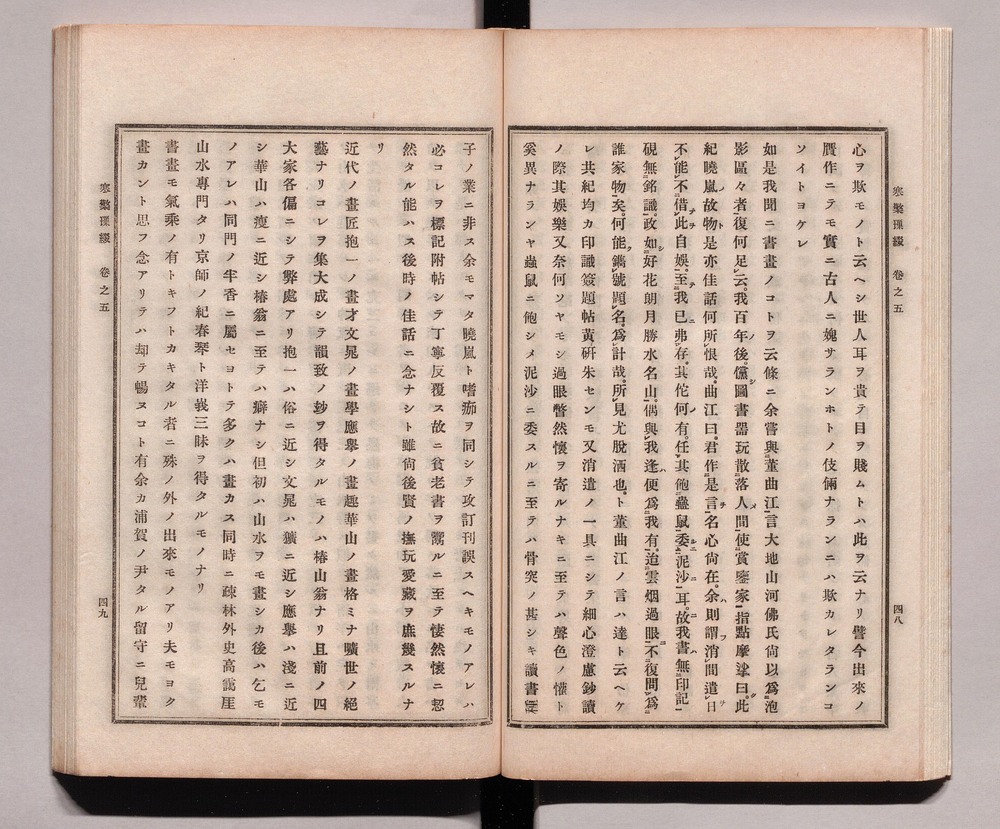 寒檠璅綴　卷之五　四八
心ヲ欺モノト云ヘシ世人耳ヲ貴テ目ヲ賤ムトハ此ヲ云ナリ譬今出來ノ
贋作ニテモ實ニ古人ニ媿サランホトノ伎倆ナランニハ欺カレタランコ
ソイトヨケレ
如是我聞ニ書畫ノコトヲ云條ニ余嘗與董曲江言大地山河佛氏尙以爲泡
影區々者復何足云我百年後儻圖書器玩散落人間使賞鑒家指點摩挲曰此
紀曉嵐故物是亦佳話何所恨哉曲江曰君作是言名心尙在余則謂消閒遣日
不能不借此自娛至我已弗存其佗何有任其飽蟲鼠委泥沙耳故我書無印記
硯無銘識政如好花朗月勝水名山偶與我逢便爲我有迨雲烟過眼不復問爲
誰家物矣何能鐫號題名爲計哉所見尤脫洒也ト董曲江ノ言ハ達ト云ヘケ
レ共紀均カ印識簽題帖黃硏朱センモ又消遣ノ一具ニシテ細心澄慮鈔讀
ノ際其娛樂又奈何ソヤモシ過眼瞥然懷ヲ寄ルナキニ至テハ聲色ノ懽ト
奚異ナランヤ蟲鼠ニ飽シメ泥沙ニ委スルニ至テハ骨突ノ甚シキ讀書種
子ノ業ニ非ス余モマタ曉嵐ト嗜痂ヲ同シテ攻訂刊誤スヘキモノアレハ
必コレヲ標記附帖シテ丁寧反覆ス故ニ貧老書ヲ鬻ルニ至テ悽然懷ニ恝
然タル能ハス後時ノ佳話ニ念ナシト雖尙後賢ノ撫玩愛藏ヲ庶幾スルナ
リ
近代ノ畫匠抱一ノ畫才文晁ノ畫學應擧ノ畫趣華山ノ畫格ミナ曠世ノ絕
藝ナリコレヲ集大成シテ韻致ノ玅ヲ得タルモノハ椿山翁ナリ且前ノ四
大家各偏ニシテ弊處アリ抱一ハ俗ニ近シ文晁ハ獷ニ近シ應擧ハ淺ニ近
シ華山ハ瘦ニ近シ椿翁ニ至テハ癖ナシ但初ハ山水ヲモ畫シカ後ハ乞モ
ノアレハ同門ノ半香ニ屬セヨトテ多クハ畫カス同時ニ疎林外史高靄厓
山水專門タリ京師ノ紀春琴ト洋峩三昧ヲ得タルモノナリ
書畫モ氣乘ノ有トキフトカキタル者ニ殊ノ外ノ出來モノアリ夫モヨク
畫カント思フ念アリテハ却テ暢ヌコト有余カ浦賀ノ尹タル留守ニ兒輩
寒檠璅綴　卷之五　四九